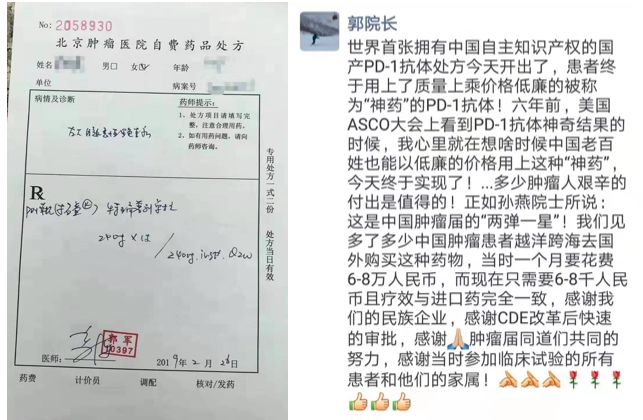 No: 2058930
北京肿瘤医院自费药品处方
姓名 男□ 女☑ 年龄
单位 病案号
病情及诊断
药师提示：
1、处方项目请填写完整，注意合理用药。
2、如有用药问题，请向药师咨询。
R
特瑞普利单抗
240mg ×
240mg iv.gtt Q2w
专用处方一式二份 处方当日有效
郭军
10397
医师： 2019年2月26日
药费 计价员 调配 核对/发药
郭院长
世界首张拥有中国自主知识产权的国
产PD-1抗体处方今天开出了，患者终
于用上了质量上乘价格低廉的被称
为“神药”的PD-1抗体！六年前，美国
ASCO大会上看到PD-1抗体神奇结果的
时候，我心里就在想啥时候中国老百
姓也能以低廉的价格用上这种“神药”，
今天终于实现了！...多少肿瘤人艰辛的
付出是值得的！正如孙燕院士所说：
这是中国肿瘤届的“两弹一星”！我们见
多了多少中国肿瘤患者越洋跨海去国
外购买这种药物，当时一个月要花费
6-8万人民币，而现在只需要6-8千人民
币且疗效与进口药完全一致，感谢我
们的民族企业，感谢CDE改革后快速
的审批，感谢🙏肿瘤届同道们共同的
努力，感谢当时参加临床试验的所有
患者和他们的家属！